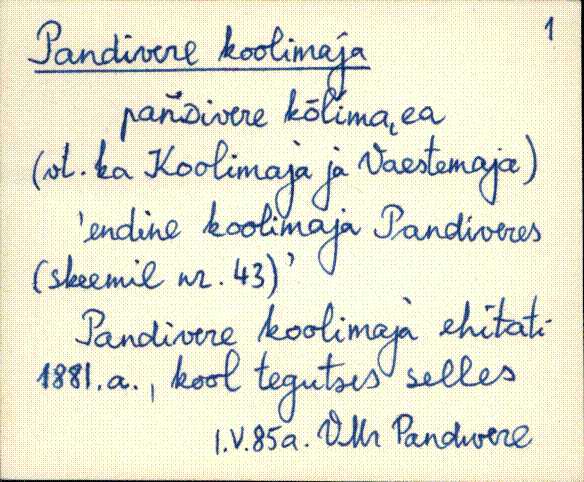 1
Pandivere koolimaja
pańDivere kōlima˛ea
(vt. ka Koolimaja ja Vaestemaja)
'endine koolimaja Pandiveres
(skeemil nr. 43)'
Pandivere koolimaja ehitati
1881.a., kool tegutses selles
I.V.85a. VMr Pandivere